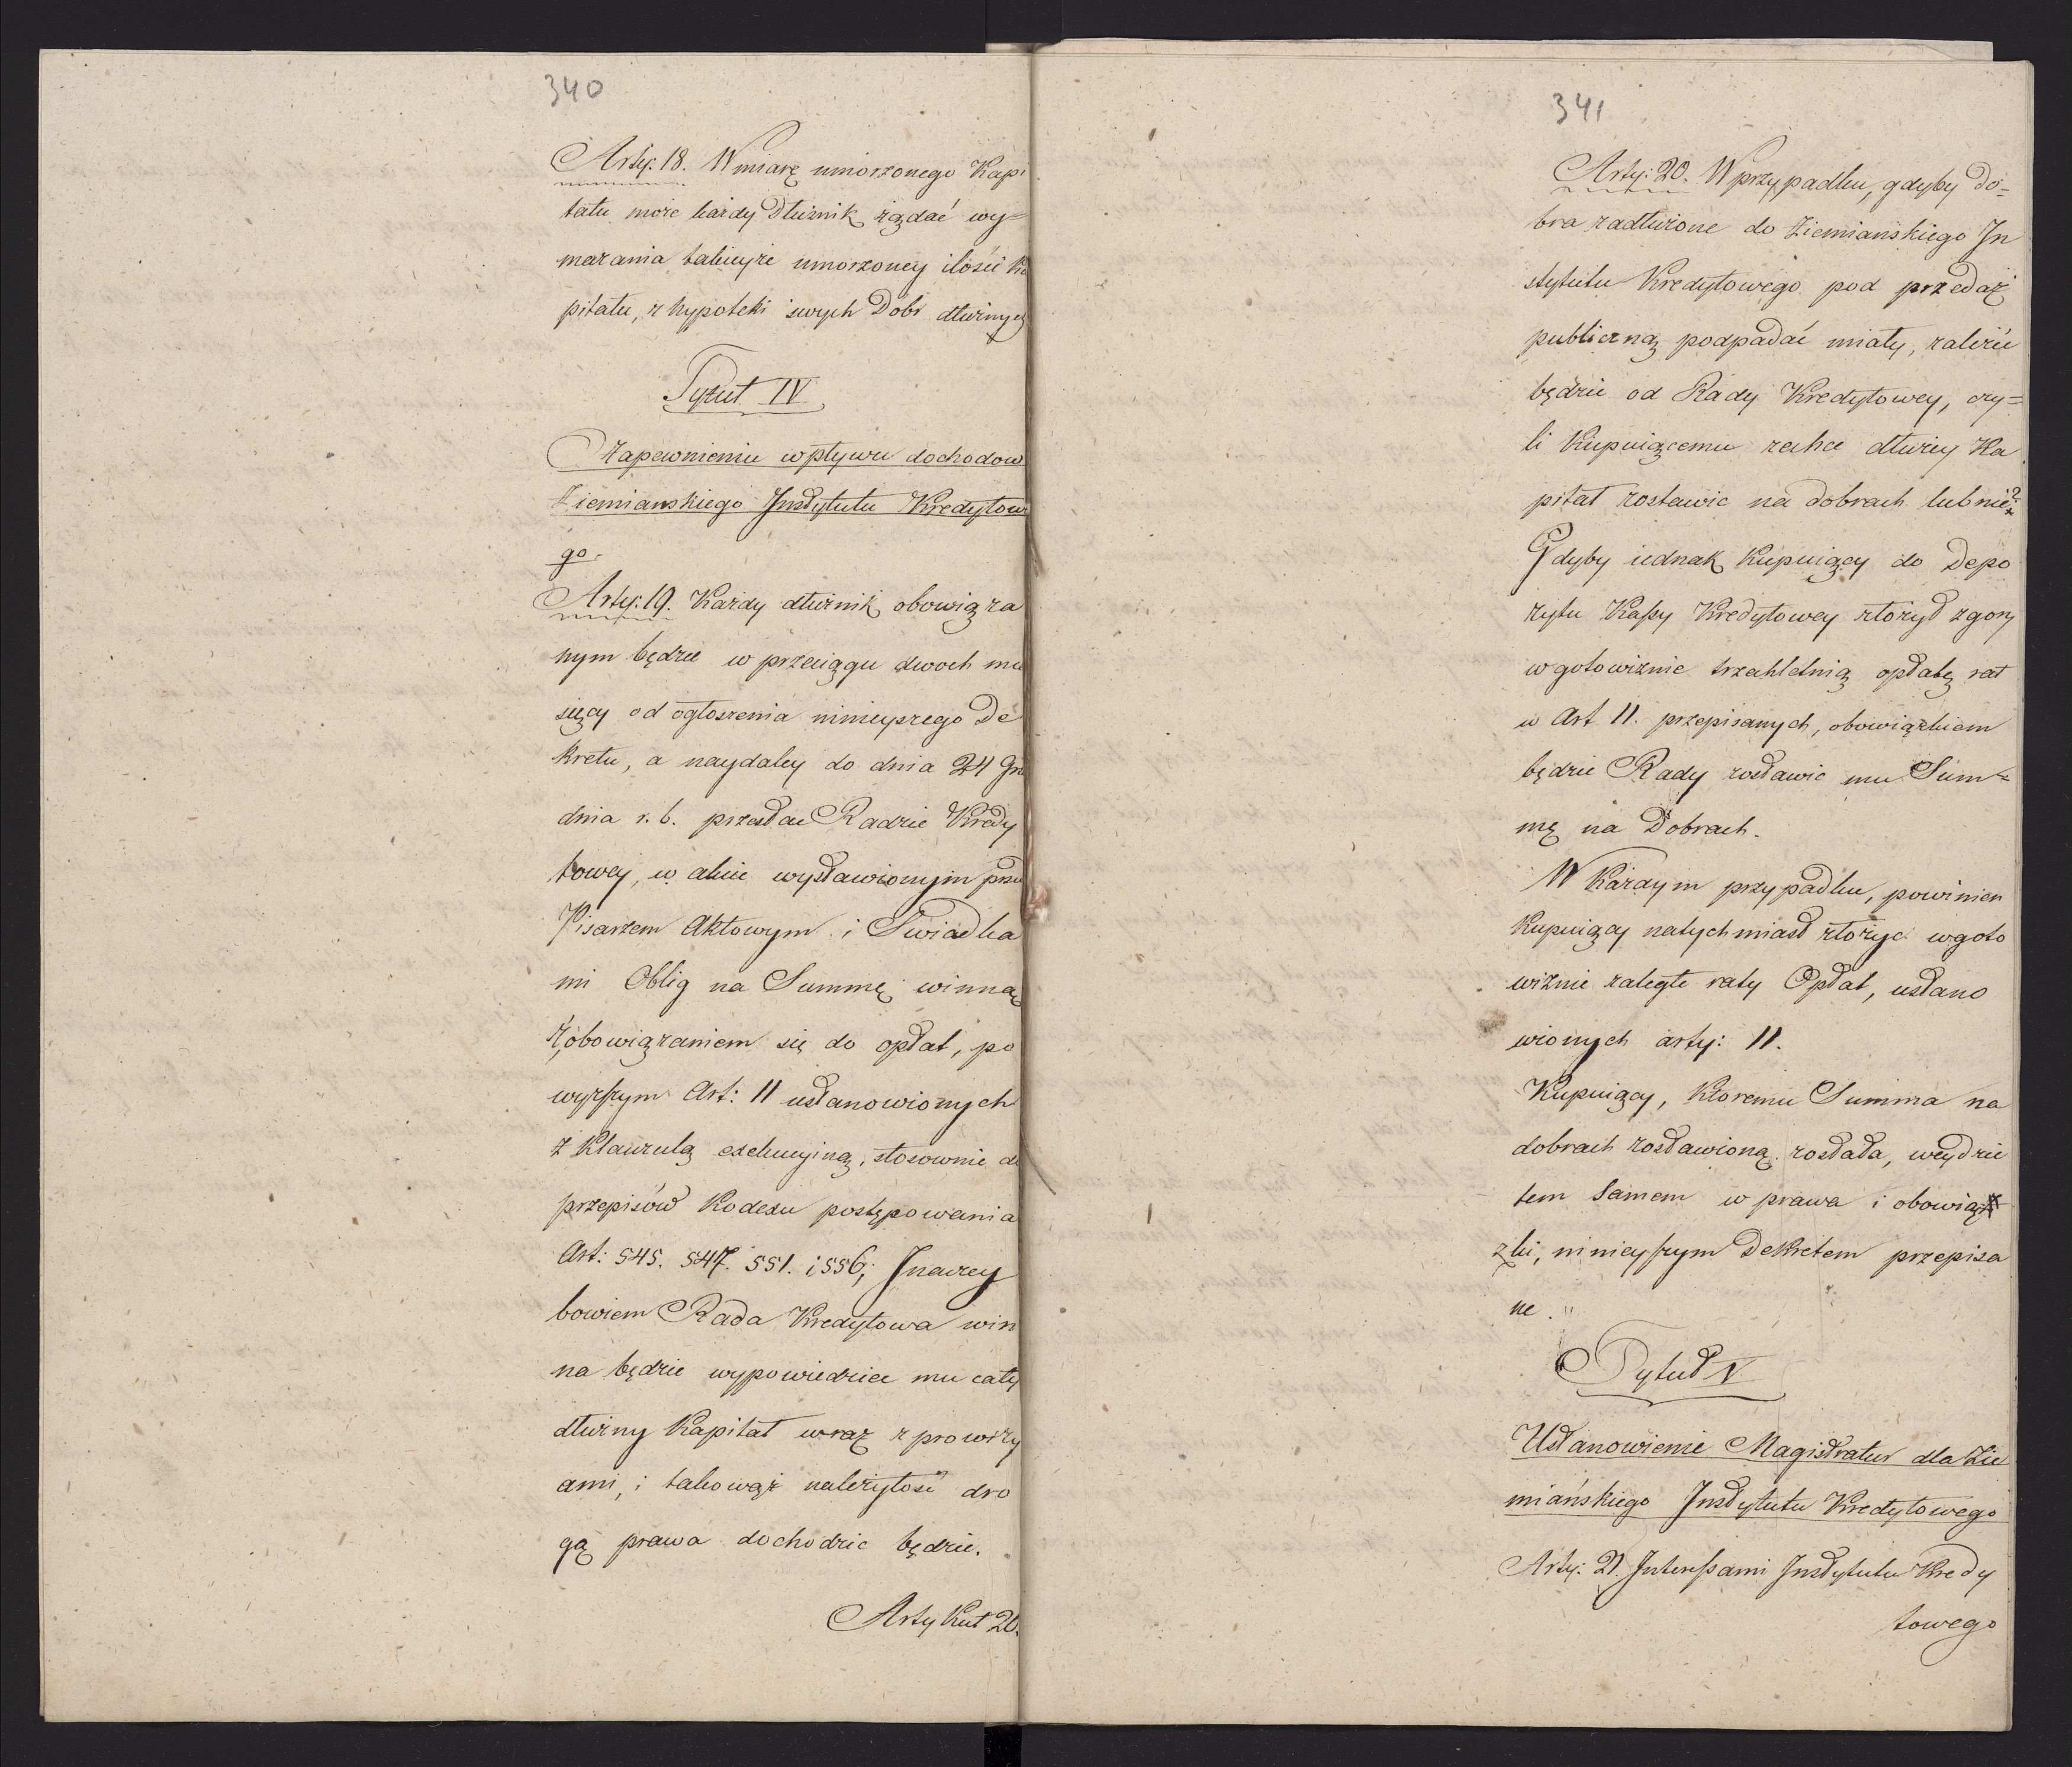 340
Arty: 18. W miarę umorzonego Kapi
tału może każdy Dłużnik żądać wy=
mazania takieyże umorzoney ilości Ka
pitału, z hypoteki swych Dóbr dłużnych
Tytuł IV
O Zapewnieniu wpływu dochodow
Ziemianskiego Instytutu Kredytowe
go.
Arty: 19. Każdy dłużnik obowiąza
nym będzie w przeciągu dwoch mie
sięcy od ogłoszenia ninieyszego De
kretu, a naydaley do dnia 24 Gru
dnia r. b. przesłać Radzie Kredy
towey, w akcie wystawionym przed
Pisarzem Aktowym i Swiadka
mi Oblig na Summę winną
z obowiązaniem się do opłat, po
wyższym Art: 11 ustanowionych
z Klauzulą exekucyiną, stosownie do
przepisów Kodexu postępowania
Art: 545. 547. 551. i 556; Inaczey
bowiem Rada Kredytowa win
na będzie wypowiedzieć mu cały
dłużny Kapitał wraz z prowizy
ami, i takowąż należytość dro
gą prawa dochodzic będzie.
Artykuł 20.
341
Arty: 20. W przypadku, gdyby Do=
bra zadłużone do Ziemiańskiego In
stytutu Kredytowego pod przedaż
publiczną podpadać miały, zależeć
będzie od Rady Kredytowey, czy=
li Kupuiącemu zechce dłużny Ka
pitał zostawic na dobrach lub nie?
Gdyby iednak Kupuiący do Depo
zytu Kassy Kredytowey złożył z gory
w gotowiznie trzechletnią opłatę rat
w Art 11. przepisanych, obowiązkiem
będzie Rady zostawic mu Sum=
mę na Dobrach.
W Każdym przypadku, powinien
Kupuiący natychmiast złożyć w goto
wiznie zaległe raty Opłat, ustano
wionych arty: 11.
Kupuiący, Ktoremu Summa na
dobrach zostawioną została, weydzie
tem samem w prawa i obowią
zki, ninieyszym Dekretem przepisa
ne.
Tytuł V
Ustanowienie Magistratur dla Zie
miańskiego Instytutu Kredytowego
Arty: 21. Interessami Instytutu Kredy
towego